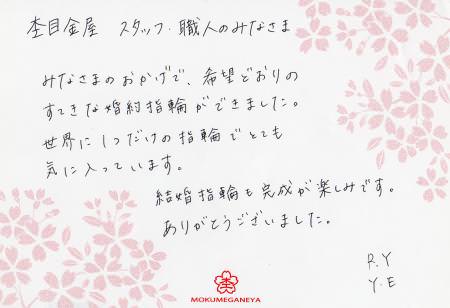 杢目金屋 スタッフ・職人のみなさま
みなさまのおかげで、希望どおりの
すてきな婚約指輪ができました。
世界に1つだけの指輪でとても
気に入っています。
結婚指輪も完成が楽しみです。
ありがとうございました。
R.Y
Y.E
杢
MOKUMEGANEYA